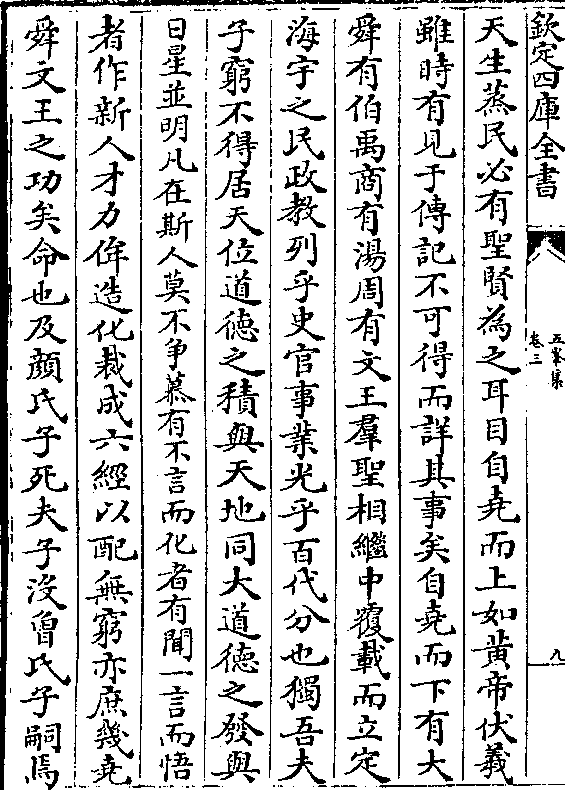 欽定四庫全書
五峯集
卷三
九
天生蒸民必有聖賢為之耳目自堯而上如黃帝伏羲
雖時有見于傳記不可得而詳其事矣自堯而下有大
舜有伯禹商有湯周有文王羣聖相繼中覆載而立定
海宇之民政教列乎史官事業光乎百代分也獨吾夫
子窮不得居天位道德之積與天地同大道德之發與
日星並明凡在斯人莫不爭慕有不言而化者有聞一言而悟
者作新人才力侔造化裁成六經以配無窮亦庶幾堯
舜文王之功矣命也及顏氏子死夫子沒曾氏子嗣焉